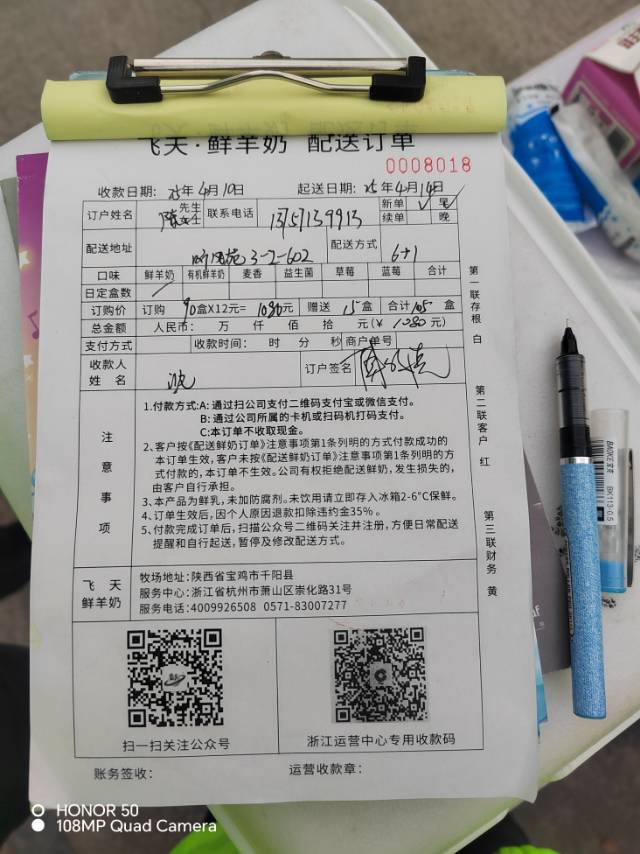 飞天·鲜羊奶 配送订单
0008018
收款日期：25年4月10日 起送日期：25年4月14日
订户姓名 陈 先生 女士 联系电话 13757139913 新单 √ 早 √
续单 晚
配送地址 3-2-602 配送方式 6+1
口味 鲜羊奶 有机鲜羊奶 麦香 益生菌 草莓 蓝莓 合计
日定盒数
订购价 订购 90盒X12元=1080元 赠送 15盒 合计105盒
总金额 人民币： 万 仟 佰 拾 元(￥ 1080元)
支付方式 收款时间： 时 分 秒 商户单号
收款人姓名 波 订户签名
注意事项
1.付款方式:A:通过扫公司支付二维码支付宝或微信支付。
B:通过公司所属的卡机或扫码机打码支付。
C:本订单不收取现金。
2、客户按《配送鲜奶订单》注意事项第1条列明的方式付款成功的
本订单生效，客户未按《配送鲜奶订单》注意事项第1条列明的方
式付款的，本订单不生效。公司有权拒绝配送鲜奶，发生损失的，
由客户自行承担。
3、本产品为鲜乳，未加防腐剂。未饮用请立即存入冰箱2-6°C保鲜。
4、订单生效后，因个人原因退款扣除违约金35%。
5、付款完成订单后，扫描公众号二维码关注并注册，方便日常配送
提醒和自行起送，暂停及修改配送方式。
飞天
鲜羊奶
牧场地址：陕西省宝鸡市千阳县
服务中心：浙江省杭州市萧山区崇化路31号
服务电话：4009926508 0571-83007277
扫一扫关注公众号 浙江运营中心专用收款码
账务签收： 运营收款章：
第一联存根 白
第二联客户 红
第三联财务 黄
BK113-0.5
HONOR 50
108MP Quad Camera